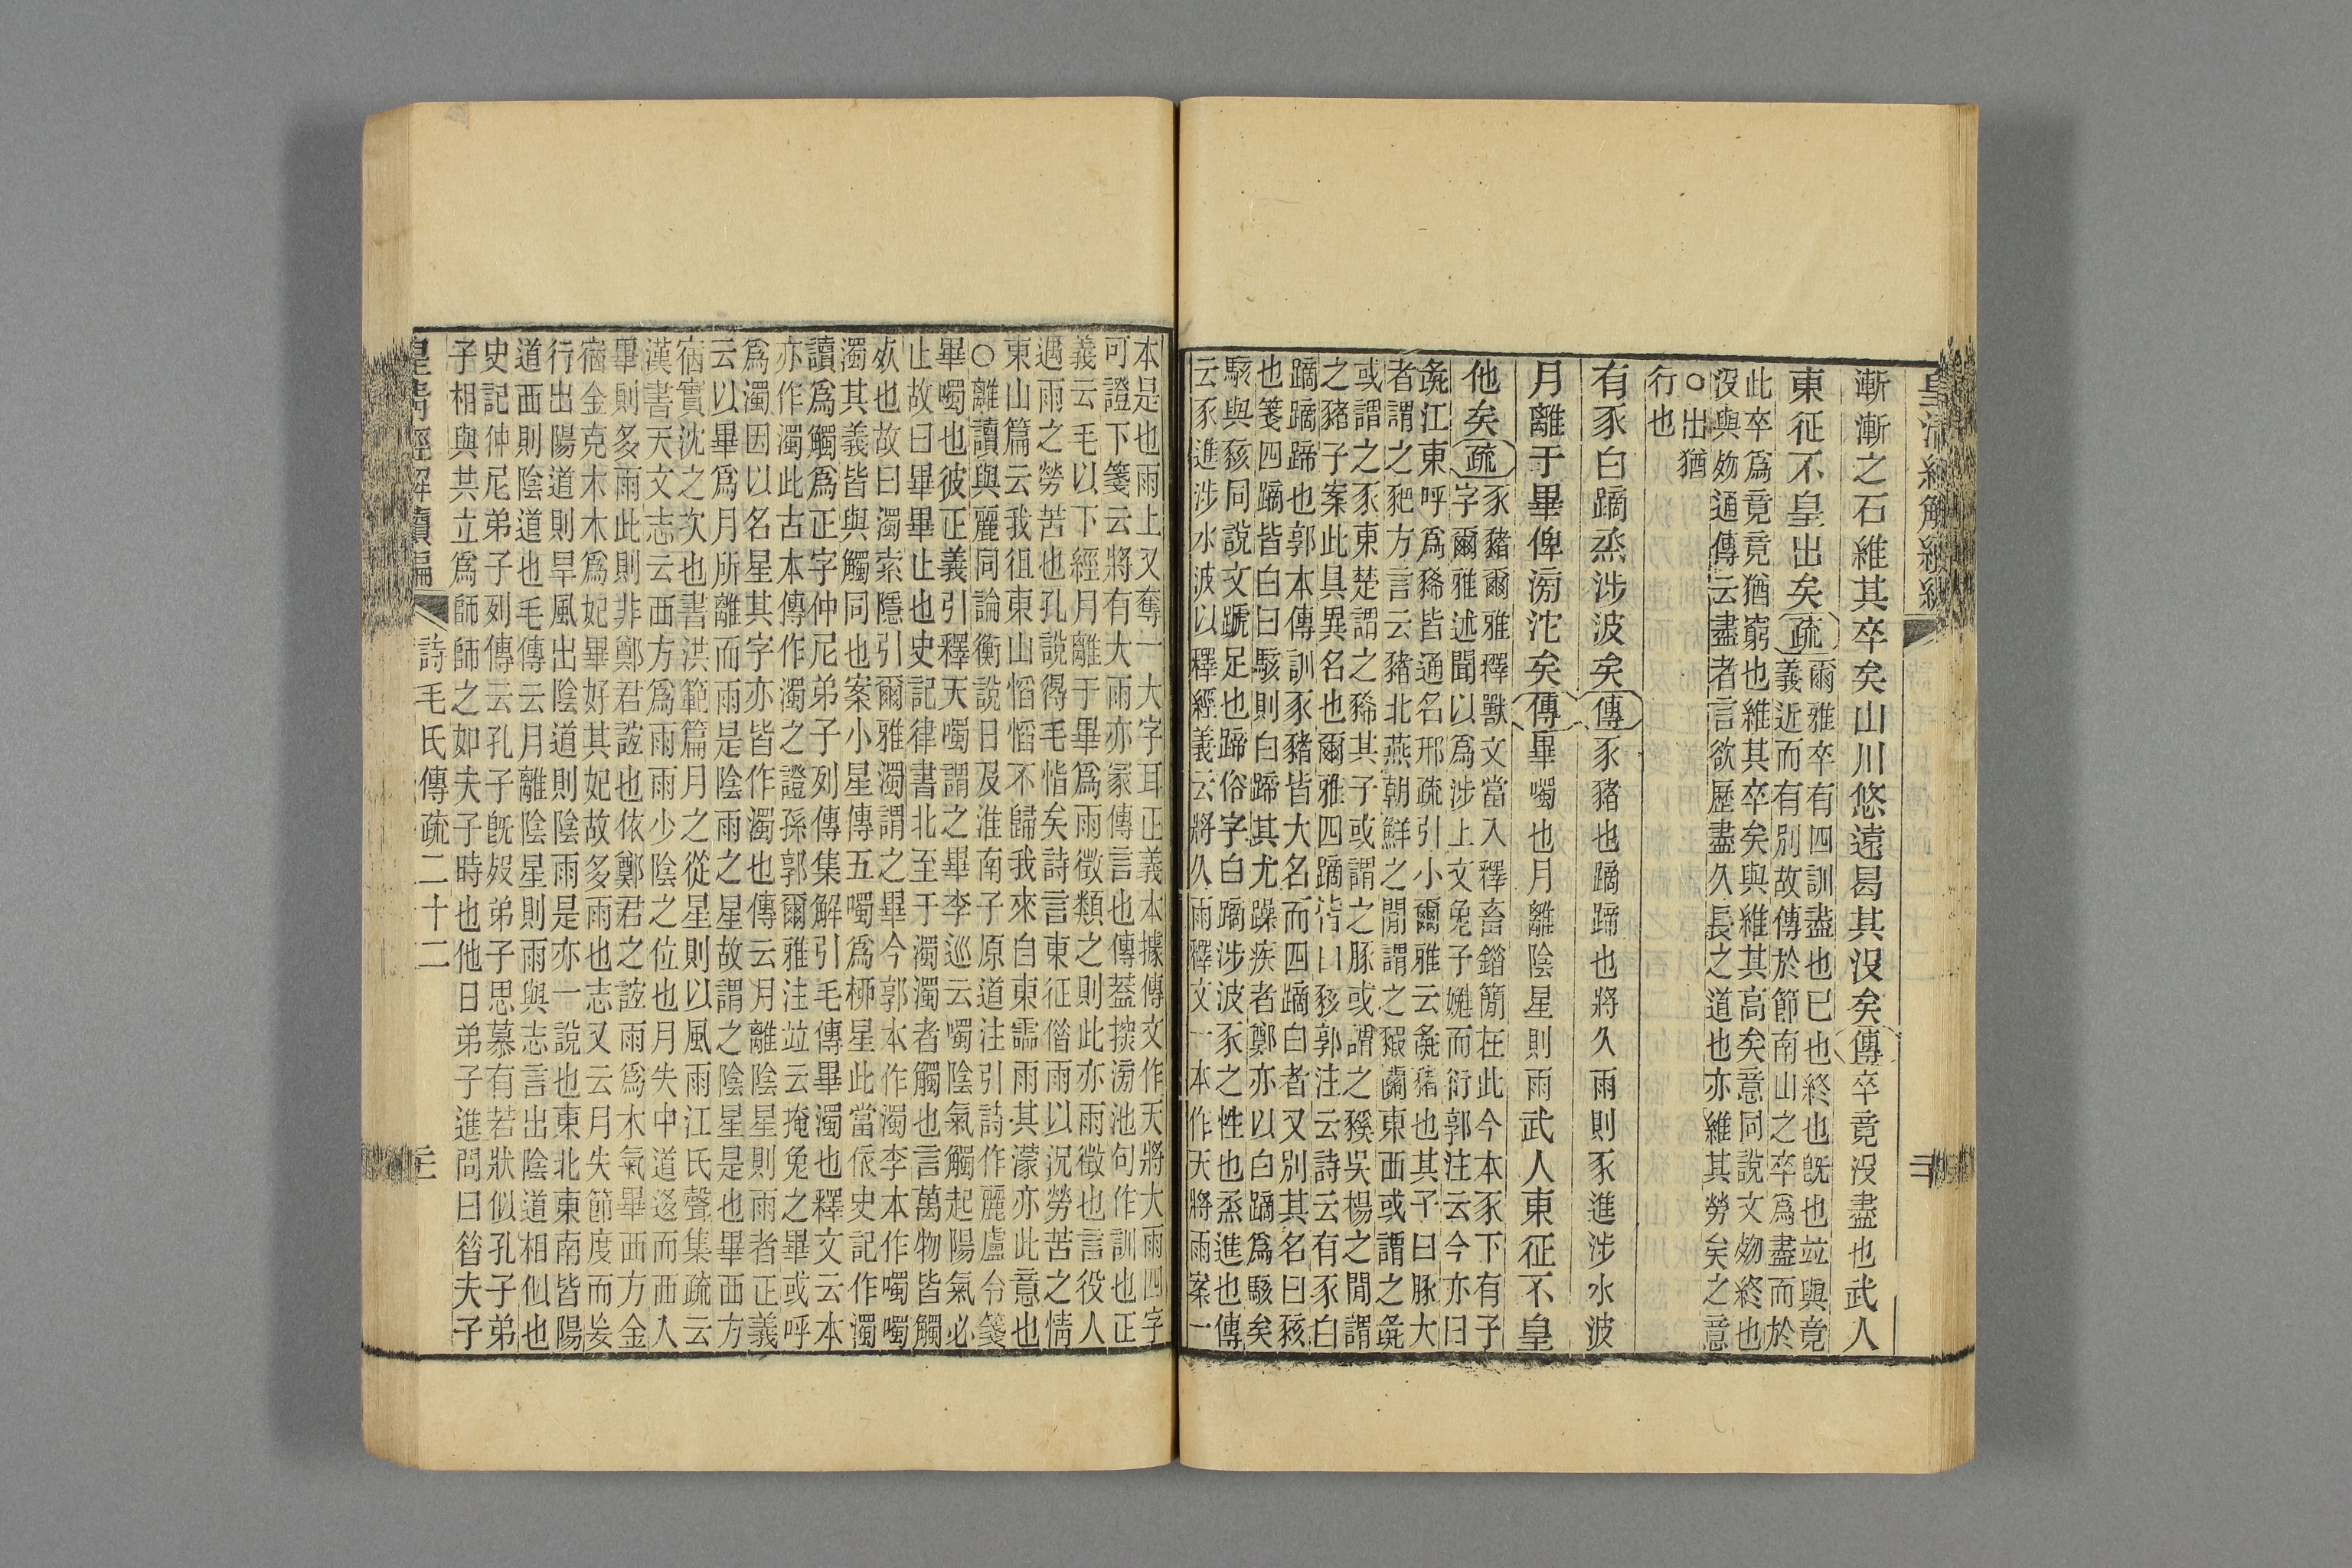 皇清經解續編
漸漸之石維其卒矣山川悠遠曷其沒矣傳卒竟沒盡也武人
東征不皇出矣疏爾雅卒有四訓盡也已也終也旣也竝與竟
義近而有別故傳於節南山之卒爲盡而於
此卒爲竟竟猶窮也維其卒矣與維其高矣意同說文歾終也
沒與歾通傳云盡者言欲歷盡久長之道也亦維其勞矣之意
○出猶
行也
有豕白蹢烝涉波矣傳豕豬也蹢蹄也將久雨則豕進涉水波
月離于畢俾滂沱矣傳畢噣也月離陰星則雨武人東征不皇
他矣疏豕豬爾雅釋獸文當入釋畜錯簡在此今本豕下有子
字爾雅述聞以爲涉上文兔子嬎而衍郭注云今亦曰
彘江東呼爲豨皆通名邢疏引小爾雅云彘豬也其子曰豚大
者謂之豝方言云豬北燕朝鮮之閒謂之豭關東西或謂之彘
或謂之豕東楚謂之豨其子或謂之豚或謂之豯吳楊之閒謂
之豬子案此具異名也爾雅四蹢皆曰豥郭注云詩云有豕白
蹢蹢蹄也郭本傳訓豕豬皆大名而四蹢白者又別其名曰豥
也箋四蹢皆白曰駭則白蹄其尤躁疾者鄭亦以白蹢爲駭矣
駭與豥同說文蹏足也蹄俗字白蹢涉波豕之性也烝進也傳
云豕進涉水波以釋經義云將久雨釋文一本作天將雨案一
本是也雨上又奪一大字耳正義本據傳文作天將大雨四字
可證下箋云將有大雨亦冡傳言也傳葢探滂池句作訓也正
義云毛以下經月離于畢爲雨徵類之則此亦雨徵也言役人
遇雨之勞苦也孔說得毛恉矣詩言東征偕雨以況勞苦之情
東山篇云我徂東山慆慆不歸我來自東霝雨其濛亦此意也
○離讀與麗同論衡說日及淮南子原道注引詩作麗盧令箋
畢噣也彼正義引釋天噣謂之畢李巡云噣陰氣觸起陽氣必
止故曰畢畢止也史記律書北至于濁濁者觸也言萬物皆觸
㱾也故曰濁索隱引爾雅濁謂之畢今郭本作濁李本作噣噣
濁其義皆與觸同也案小星傳五噣爲桺星此當依史記作濁
讀爲觸爲正字仲尼弟子列傳集解引毛傳畢濁也釋文云本
亦作濁此古本傳作濁之證孫郭爾雅注竝云掩兔之畢或呼
爲濁因以名星其字亦皆作濁也傳云月離陰星則雨者正義
云以畢爲月所離而雨是陰雨之星故謂之陰星是也畢西方
宿實沈之次也書洪範篇月之從星則以風雨江氏聲集疏云
漢書天文志云西方爲雨雨少陰之位也月失中道迻而西入
畢則多雨此則非鄭君誼也依鄭君之誼雨爲木氣畢西方金
宿金克木木爲妃畢好其妃故多雨也志又云月失節度而妄
行出陽道則旱風出陰道則陰雨是亦一說也東北東南皆陽
道西則陰道也毛傳云月離陰星則雨與志言出陰道相似也
史記仲尼弟子列傳云孔子旣歿弟子思慕有若狀似孔子弟
子相與共立爲師師之如夫子時也他日弟子進問曰昝夫子
皇清經解續編 詩毛氏傳疏二十二